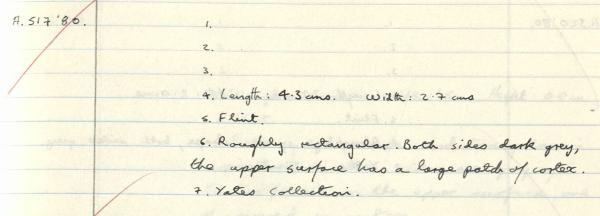 A.517'80.
1.
2.
3.
4. Length: 4.3cms. Width: 2.7 cms
5. Flint.
6. Roughly rectangular. Both sides dark grey,
the upper surface has a large patch of cortex.
7. Yates Collection.